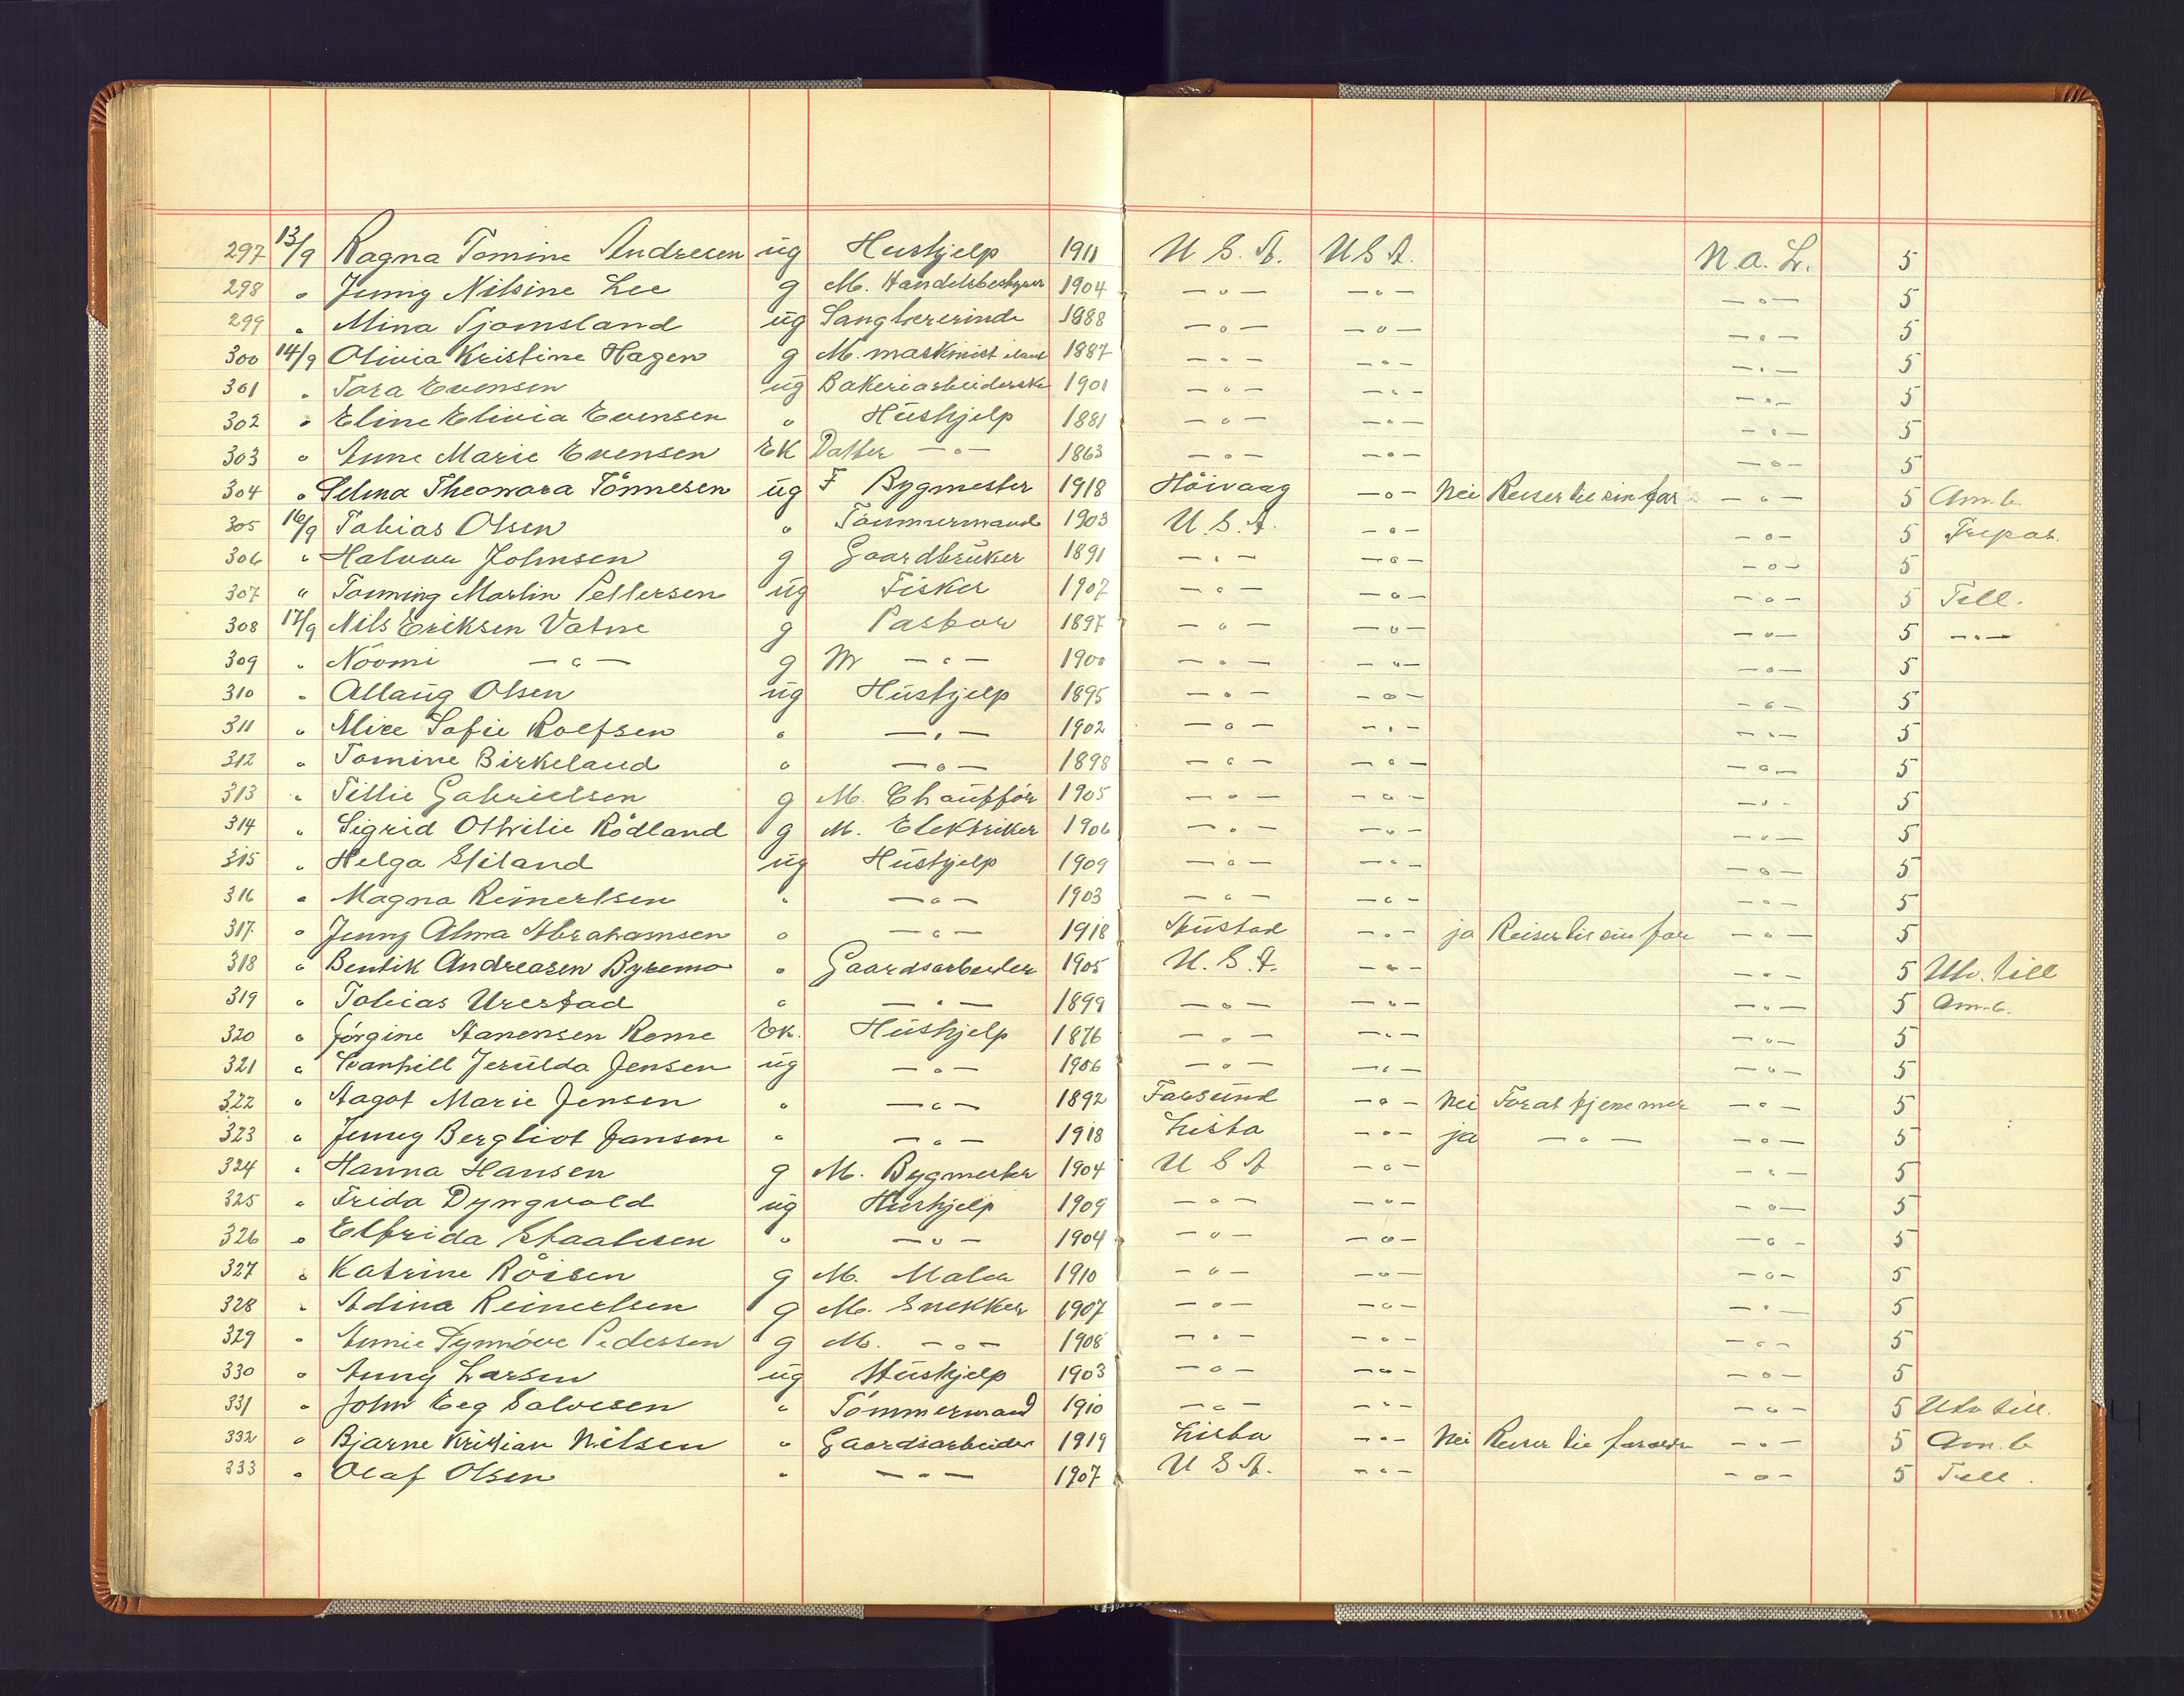 297 13/9 Ragna Tomine Andresen ug Hushjelp 1911 U. S. A. U S A. N. a. L. 5
298 " Jenny Nilsine Lee g M. Handelsbestyrer 1904 — " — — " — — " — 5
299 " Mina Tjomsland ug Sanglærerinde 1888 — " — — " — — " — 5
300 14/9 Olivia Kristine Hagen g M. maskinist 1887 — " — — " — — " — 5
301 " Tora Evensen ug Bakeriarbeiderske 1901 — " — — " — — " — 5
302 " Eline Elivia Evensen " Hüshjelp 1881 — " — — " — — " — 5
303 " Anne Marie Evensen EK Datter — " — 1863 — " — — " — — " — 5
304 " Selma Theonora Tönnesen ug F Bygmester 1918 Höivaag — " — Nei Reiser til sin far — " — 5 Am. b.
305 16/9 Tobias Olsen " Tömmermand 1903 U. S. A. — " — — " — 5
306 " Halvor Johnsen g Gaardbrüker 1891 — " — — " — — " — 5
307 " Tonning Martin Pettersen ug Fisker 1907 — " — — " — — " — 5 Till.
308 17/9 Nils Eriksen Vatne g Pastor 1897 — " — — " — — " — 5 — " —
309 " Noomi — " — g M — " — 1900 — " — — " — — " — 5
310 " Allaug Olsen ug Hüshjelp 1895 — " — — " — — " — 5
311 " Alice Sofie Rolfsen " — " — 1902 — " — — " — — " — 5
312 " Tomine Birkeland " — " — 1898 — " — — " — — " — 5
313 " Tillie Gabrielsen g M. Chaufför 1905 — " — — " — — " — 5
314 " Sigrid Othilie Rödland g M. Elektriker 1906 — " — — " — — " — 5
315 " Helga Stiland ug Hüshjelp 1909 — " — — " — — " — 5
316 " Magna Reinertsen " — " — 1903 — " — — " — — " — 5
317 " Jenny Alma Abrahamsen " — " — 1918 — " — ja Reiser til sin far — " — 5
318 " Bentik Andreasen Byremo " Gaardsarbeider 1905 U. S. A. — " — — " — 5 Utv. till
319 " Tobias Urestad " — " — 1899 — " — — " — — " — 5 Am. b.
320 " Jörgine Hanensen Rome Ek. Hüshjelp 1876 — " — — " — — " — 5
321 " Svanhill Jerülda Jensen ug — " — 1906 — " — — " — — " — 5
322 " Aagot Marie Jensen " — " — 1892 Farsünd — " — Nei For at tjene mer — " — 5
323 " Jenny Bergliot Jansen " — " — 1918 Lista — " — ja — " — — " — 5
324 " Hanna Hansen g M. Bygmester 1904 U S A — " — — " — 5
325 " Frida Dyngvold ug Hüshjelp 1909 — " — — " — — " — 5
326 " Elfrida Staalesen " — " — 1904 — " — — " — — " — 5
327 " Katrine Röisen g M. Maler 1910 — " — — " — — " — 5
328 " Adina Reinertsen g M. Snekker 1907 — " — — " — — " — 5
329 " Annie Synnöve Pedersen g M. — " — 1908 — " — — " — — " — 5
330 " Anny Larsen ug Hüshjelp 1903 — " — — " — — " — 5
331 " John Eeg Salvesen " Tömmermand 1910 — " — — " — — " — 5 Utv till.
332 " Bjarne Kristian Nilsen " Gaardsarbeider 1919 Lista — " — Nei Reiser til foreldre — " — 5 Am. b
333 " Olaf Olsen " — " — 1907 U S A. — " — — " — 5 Till.